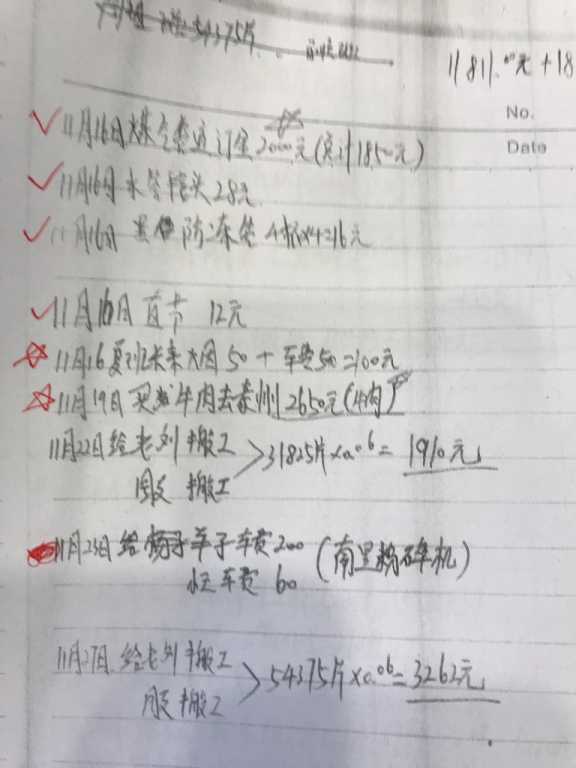 54375片
11811.00元+18
No.
Date
11月16日煤气 订金2000元(实计1850元)
11月16日水管接头28元
11月16日 黑色防冻管4根×4=16元
11月16日直节 12元
11月16 夏 烟50+车费50=100元
11月19日买 牛肉去泰州2650元(牛肉)
11月22日给老刘搬工
周 搬工
31825片×0.06=1910元
11月23日给 车费200(南里粉碎机)
车费60
11月27日给老刘搬工
周 搬工
54375片×0.06=3262元